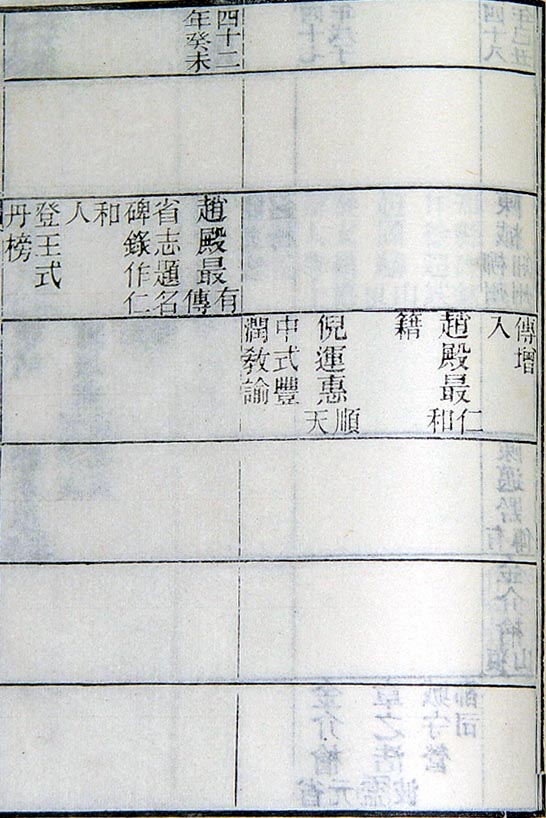 傳增
入
趙殿最仁和
籍
倪運惠順天
中式豐
潤教諭
四十二
年癸未
趙殿最有傳
省志題名
碑錄作仁
和
人
登王式
丹榜